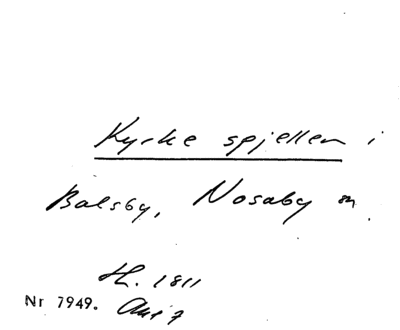 Kyrkespjellen i
Balsby, Nosaby sn.
H. 1811
Nr 7949.